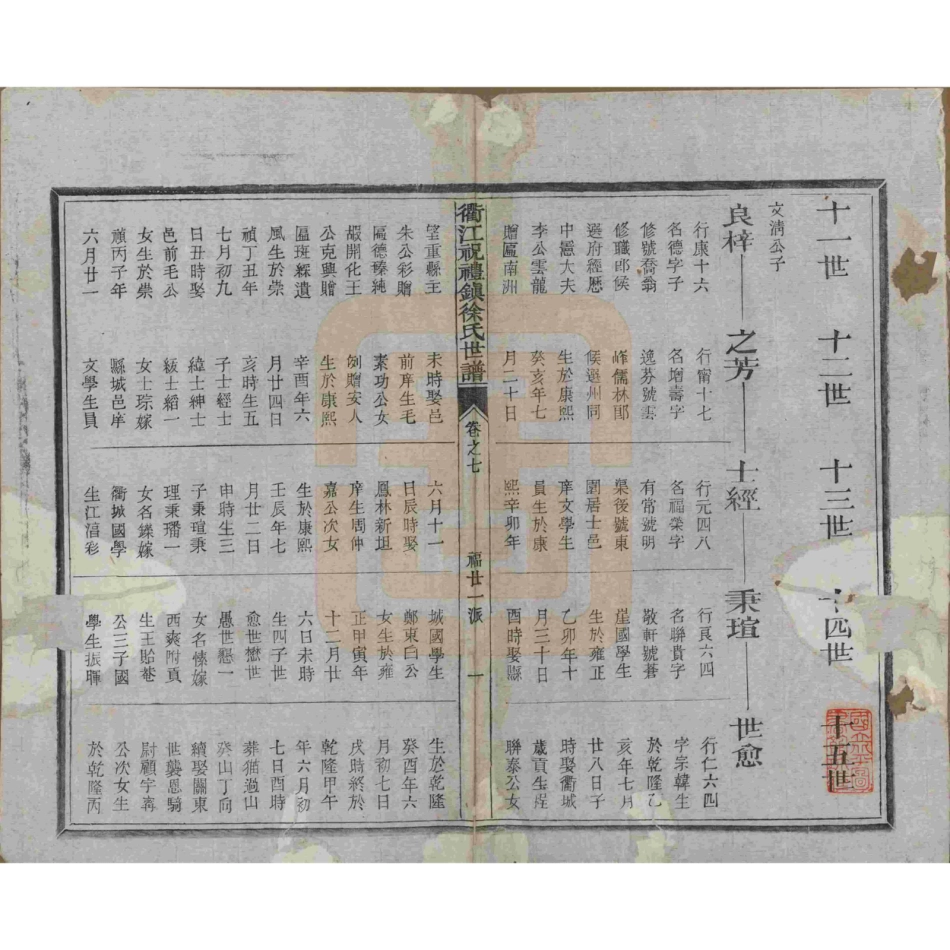 十一世
十二世
十三世
十四世
十五世
文清公子
良梓
之芳
士經
秉瑄
世愈
行康十六
名德字子
修號喬翁
修職郎候
選府經歷
中憲大夫
李公雲龍
贈區南洲
望重縣主
朱公彩贈
區德臻純
嘏開化王
公克興贈
區斑綵遺
風生於崇
禎丁丑年
七月初九
日丑時娶
邑前毛公
女生於崇
禎丙子年
六月廿一
行甯十七
名增壽字
逸芬號
峰儒林郎
候選州同
生於康熙
癸亥年七
月二十日
未時娶邑
前庠生毛
素功公女
例贈安人
生於康熙
辛酉年六
月廿四日
亥時生五
子士經士
緯士紳士
級士縚一
女士琮嫁
縣城邑庠
文學生員
行元四八
名福榮字
有常號明
渠後號東
園居士邑
庠文學生
員生於康
熙辛卯年
六月十一
日辰時娶
鳳林新坦
庠生周仲
嘉公次女
生於康熙
壬辰年七
月廿二日
申時生三
子秉瑄秉
理秉璠一
女名鑠嫁
衢城國學
生江滀彩
行艮六四
名聯貴字
敬軒號蒼
崖國學生
生於雍正
乙卯年十
月三十日
酉時娶縣
城國學生
鄭東曰公
女生於雍
正甲寅年
十二月廿
六日未時
生四子世
愈世懋世
愚世懇一
女名愫嫁
西爽附貢
生王貽菴
公三子國
學生振聯
行仁六四
字宗韓生
於乾隆乙
亥年七月
廿八日子
時娶衢城
歲貢生程
聯泰公女
生於乾隆
癸酉年六
月初七日
戌時終於
乾隆甲午
年六月初
七日酉時
葬猫過山
癸山丁向
續娶關東
世襲恩騎
尉顧字壽
公次女生
於乾隆丙
衢江祝禮鎮徐氏世譜
卷之七
福廿一派
一